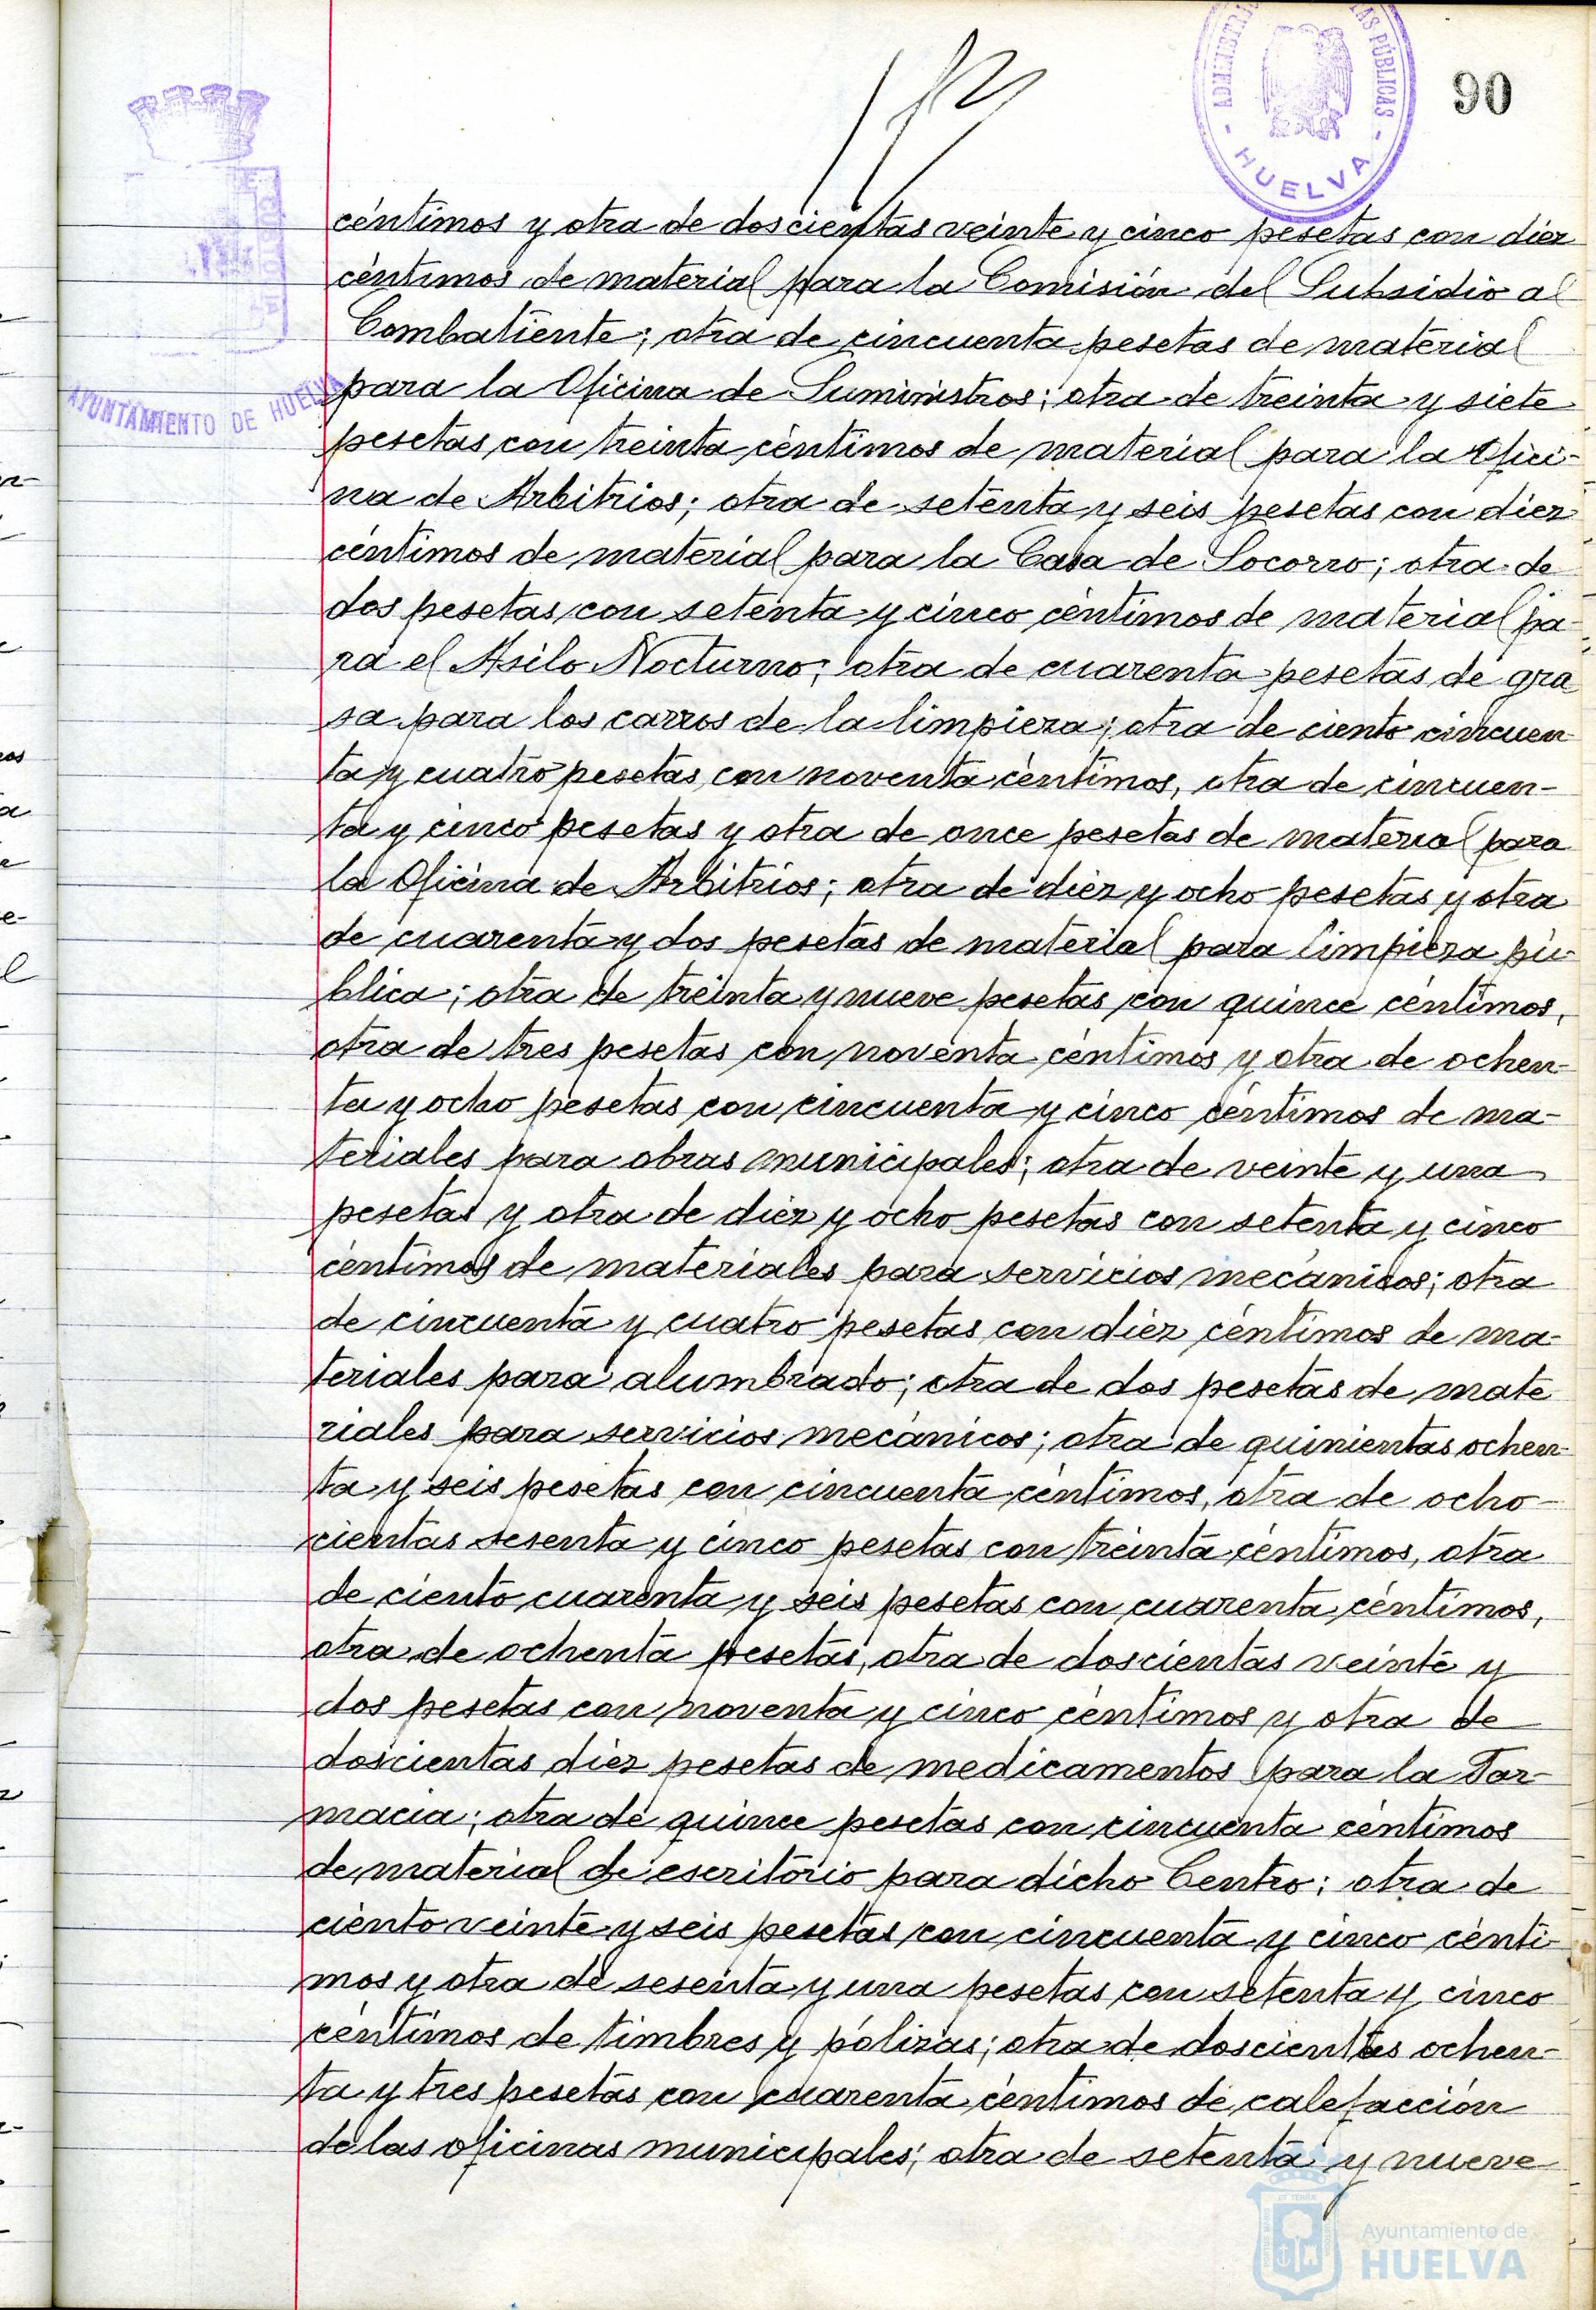 90
ADMINISTR
AS PÚBLICAS
- HUELVA -
AYUNTAMIENTO DE HUELVA
céntimos y otra de doscientas veinte y cinco pesetas con diez
céntimos de material para la Comisión del Subsidio al
Combatiente; otra de cincuenta pesetas de material
para la Oficina de Suministros; otra de treinta y siete
pesetas con treinta céntimos de material para la Ofici-
na de Arbitrios; otra de setenta y seis pesetas con diez
céntimos de material para la Casa de Socorro; otra de
dos pesetas con setenta y cinco céntimos de material pa-
ra el Asilo Nocturno; otra de cuarenta pesetas de gra
sa para los carros de la limpieza; otra de ciento cincuen-
ta y cuatro pesetas con noventa céntimos, otra de cincuen-
ta y cinco pesetas y otra de once pesetas de material para
la Oficina de Arbitrios; otra de diez y ocho pesetas y otra
de cuarenta y dos pesetas de material para limpieza pú-
blica; otra de treinta y nueve pesetas con quince céntimos,
otra de tres pesetas con noventa céntimos y otra de ochen-
ta y ocho pesetas con cincuenta y cinco céntimos de ma-
teriales para obras municipales; otra de veinte y una
pesetas y otra de diez y ocho pesetas con setenta y cinco
céntimos de materiales para servicios mecánicos; otra
de cincuenta y cuatro pesetas con diez céntimos de ma-
teriales para alumbrado; otra de dos pesetas de mate
riales para servicios mecánicos; otra de quinientas ochen-
ta y seis pesetas con cincuenta céntimos, otra de ocho-
cientas sesenta y cinco pesetas con treinta céntimos, otra
de ciento cuarenta y seis pesetas con cuarenta céntimos,
otra de ochenta pesetas, otra de doscientas veinte y
dos pesetas con noventa y cinco céntimos y otra de
doscientas diez pesetas de medicamentos para la Far-
macia; otra de quince pesetas con cincuenta céntimos
de material de escritorio para dicho Centro; otra de
ciento veinte y seis pesetas con cincuenta y cinco cénti-
mos y otra de sesenta y una pesetas con setenta y cinco
céntimos de timbres y pólizas; otra de doscientas ochen-
ta y tres pesetas con cuarenta céntimos de calefacción
de las oficinas municipales; otra de setenta y nueve
Ayuntamiento de
HUELVA